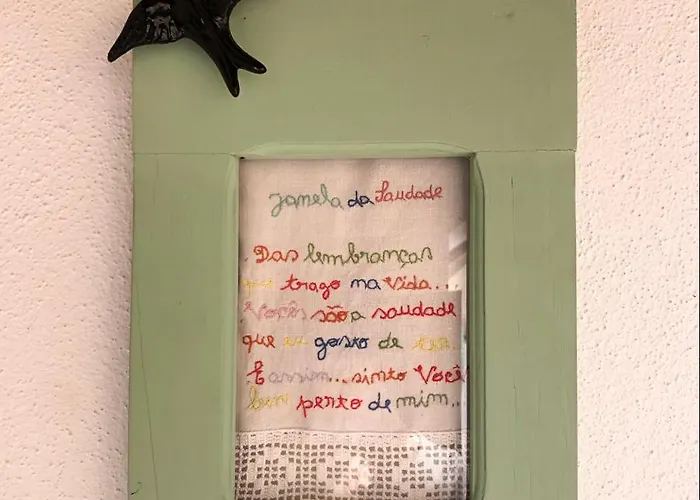 Janela da Saudade
Das lembranças
que trago na vida...
Vocês são a saudade
que eu gosto de ter
E assim... sinto Você
bem perto de mim...